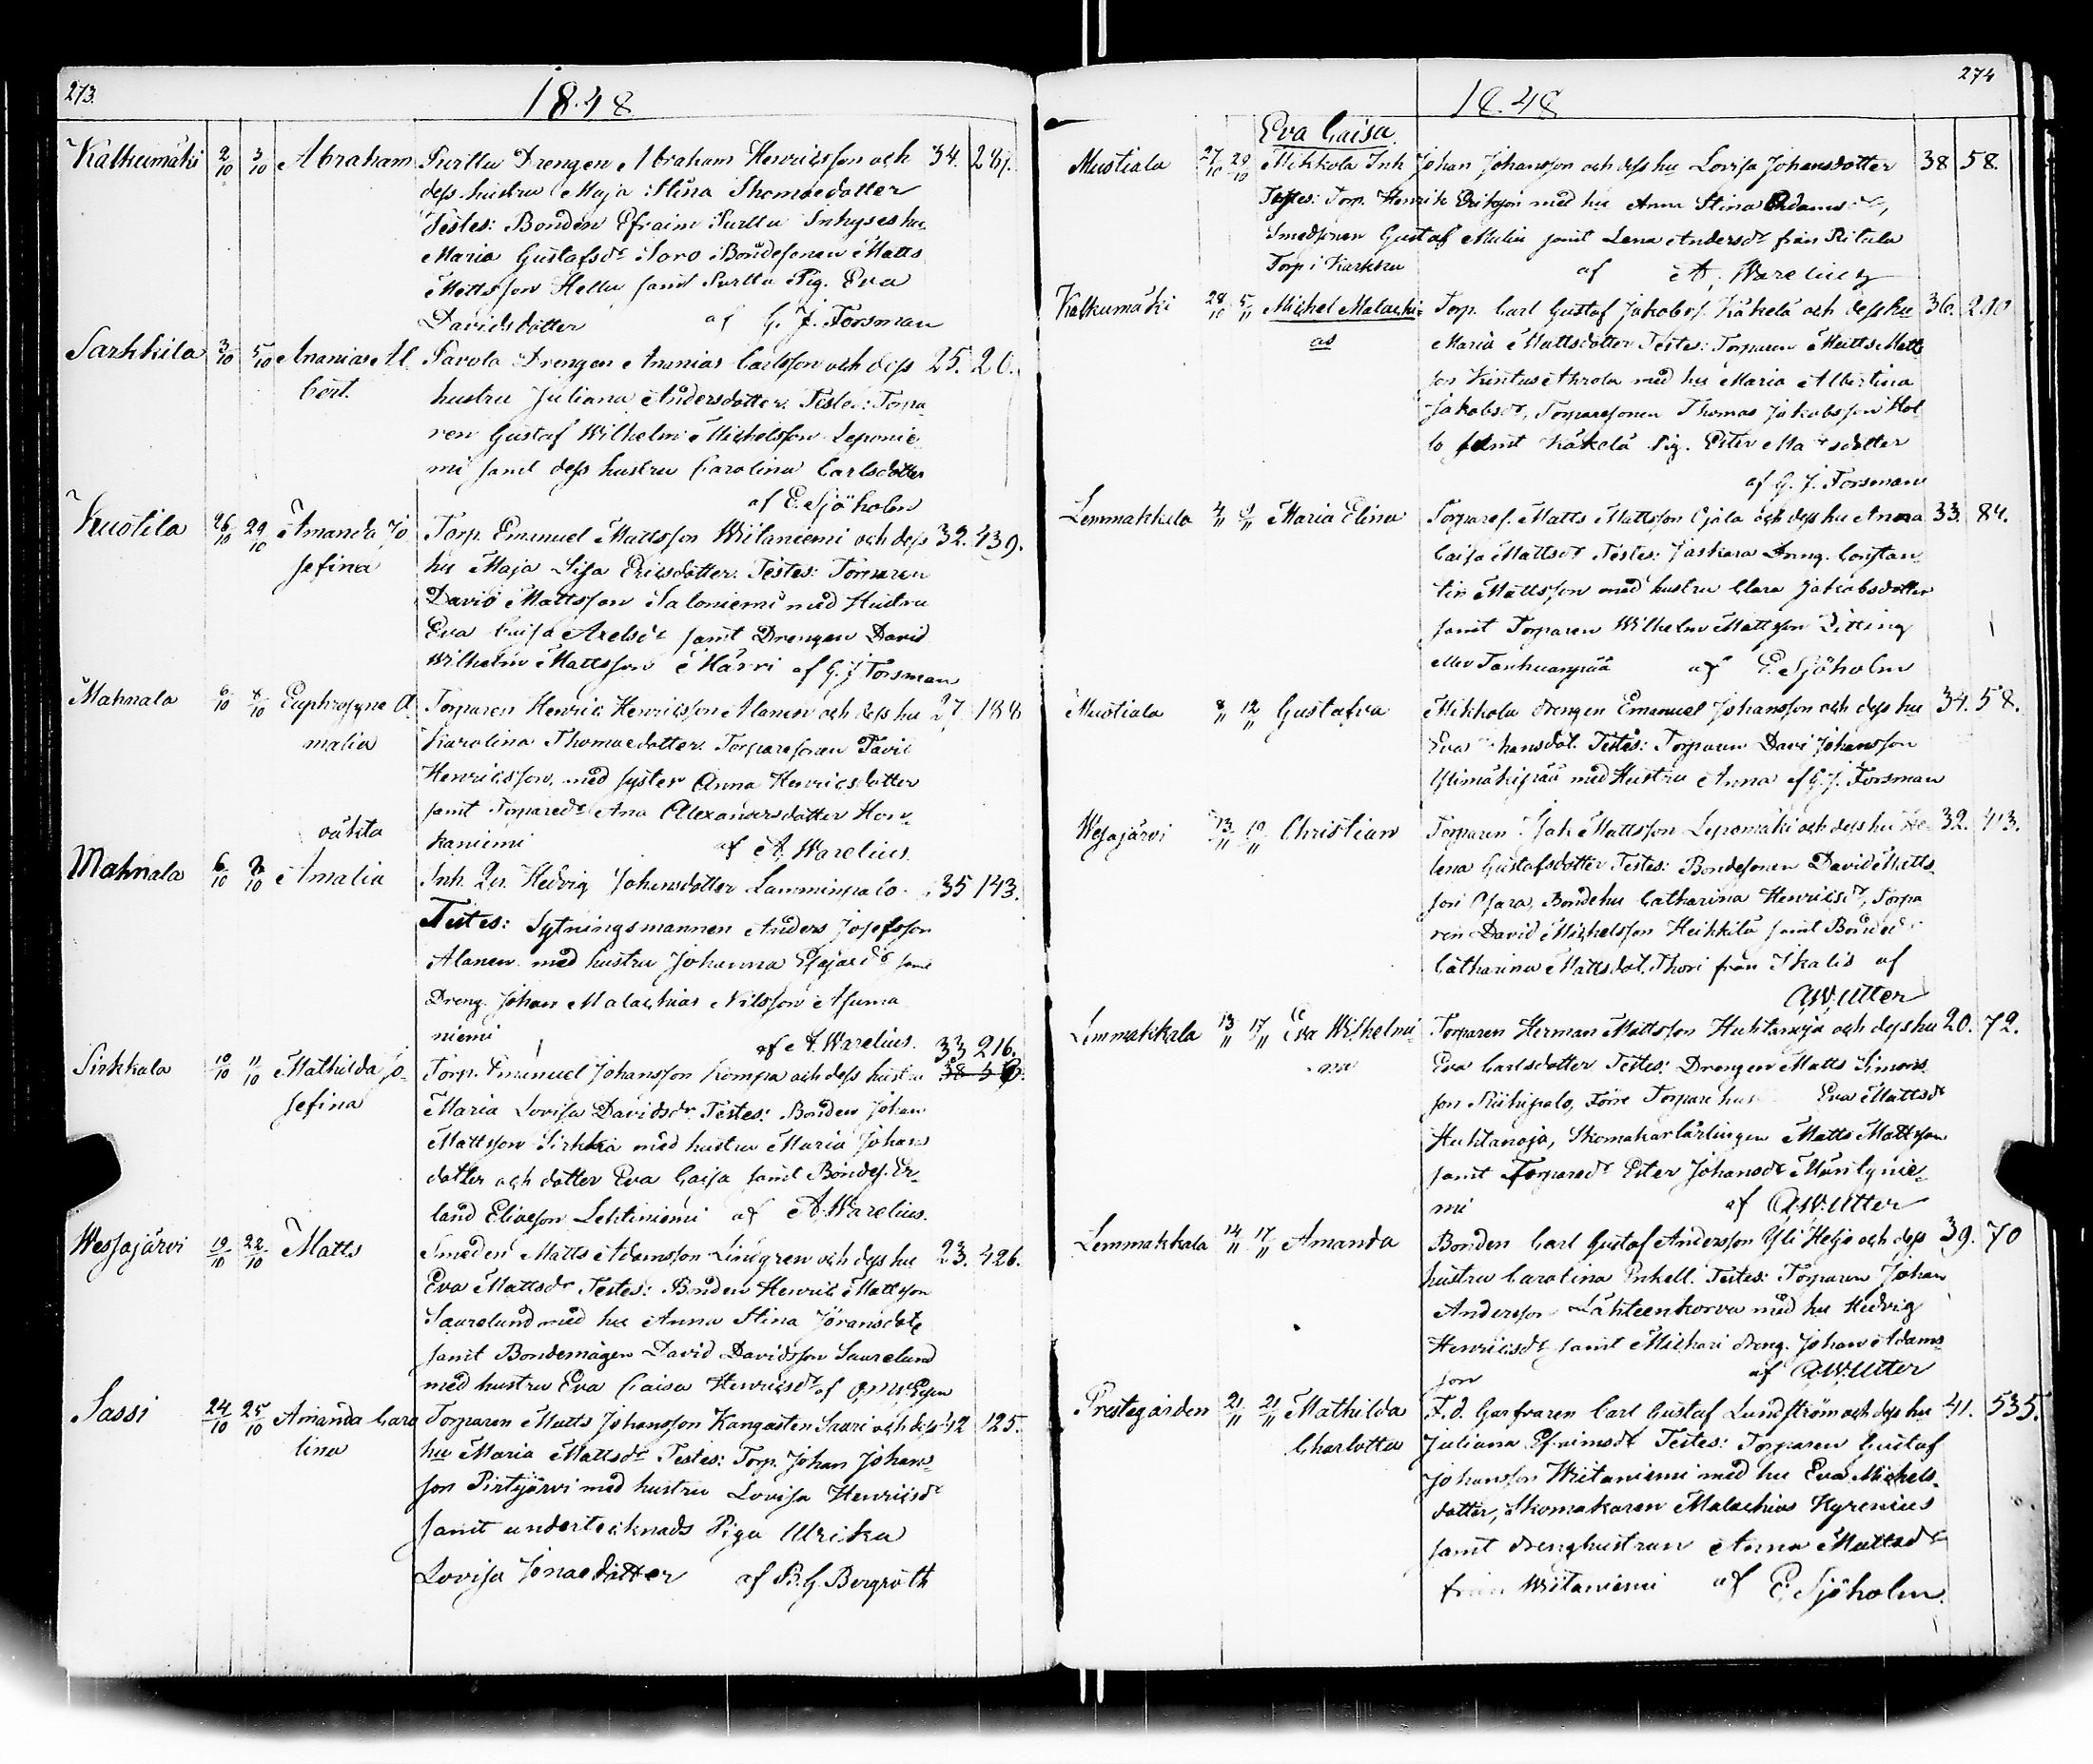 273.
1848
Kalkumäki 2/10 3/10 Abraham Purttu Drengen Abraham Henricsson och 34. 281.
dess hustru Maja Stina Thomaedotter
Testes: Bonden Efraim Purttu Inhyses hu
Maria Gustafsdr Soro Bondesonen Matts
Mattsson Hellu samt Purttu Pig. Eva
Davidsdotter af G. J. Forsman
Sarkkila 3/10 5/10 Ananias Al Pavola Drengen Ananias Carlsson och dess 25. 20.
bert. hustru Juliana Andersdotter. Testes: Torpa-
ren Gustaf Wilhelm Michelsson Leponie-
mi samt dess hustru Carolina Carlsdotter
af E. Sjöholm
Kuotila 26/10 29/10 Amanda Jo Torp. Emanuel Mattsson Wiitaniemi och dess 32. 439.
sefina hu Maja Lisa Ericsdotter. Testes: Torparen
David Mattsson Saloniemi med Hustru
Eva Caisa Axelsdr samt Drengen David
Wilhelm Mattsson Härri af G. J. Forsman
Mahnala 6/10 8/10 Euphrosyne A. Torparen Henric Henricsson Alanen och dess hu 27. 188
malia Karolina Thomaedotter. Torparesonen Tavit
Henricsson, med syster Anna Henricsdotter
samt Torparedr Ana Alexandersdotter Hon-
kaniemi af A. Warelius.
oäkta
Mahnala 6/10 8/10 Amalia Inh. Qv. Hedvig Johansdotter Lamminpalo. 35 143.
Testes: Sytningsmannen Anders Josefsson
Alanen med hustru Johanna Esajaedr samt
Dreng. Johan Malachias Nilsson Asuma
niemi af A. Warelius. 33 216.
Sirkkala 10/10 11/10 Mathilda Jo- Torp. Emanuel Johansson Kompa och dess hustru
sefina Maria Lovisa Davidsdr. Testes: Bonden Johan
Mattsson Sirkka med hustru Maria Johans
dotter och dotter Eva Caisa samt Bondes. Er-
land Eliaeson Lehtiniemi af A. Warelius.
Wessajärvi 19/10 22/10 Matts Smeden Matts Adamsson Lindgren och dess hu 23. 426.
Eva Mattsdr Testes: Bonden Henric Mattsson
Saurelund med hu Anna Stina Jöransdotr
samt Bondemågen David Davidsson Saurelund
med hustru Eva Caisa Henricsdr af
Sassi 24/10 25/10 Amanda Caro Torparen Matts Johansson Kangasten Saari och dess 42 125.
lina hu Maria Mattsdr Testes: Torp. Johan Johans-
son Pirttijärvi med hustru Lovisa Henricsdr
samt undertecknads Piga Ulrika
Lovisa Jonaedotter af B. G. Bergroth
274
1848
Eva Caisa
Mustiala 27/10 29/10 Mikkola Inh Johan Johansson och dess hu Lovisa Johansdotter 38 58.
Testes: Torp. Henrik Eriksson med hu Anna Stina Adamsdr,
Smedsonen Gustaf Malin samt Lena Andersdr från Ritala
Torp i Karkku af A. Warelius
Kalkumäki 28/10 5/11 Michel Malachi- Torp. Carl Gustaf Jakobss. Käkelä och dess hu 36. 200
as Maria Mattsdotter Testes: Torparen Matts Matts
son Kintus Ahrola med hu Maria Albertina
Jakobsdr, Torparesonen Thomas Jakobsson Hol-
lo samt Käkelä Pig. Ester Mattsdotter
af G. J. Forsman
Lemmakkala 4/11 6/11 Maria Elina Torpares. Matts Mattsson Ojala och dess hu Anna 33. 84.
Caisa Mattsdr Testes: Jaskara Dreng. Constan-
tin Mattsson med hustru Clara Jakobsdotter
samt Torparen Wilhelm Mattsson Zitting
eller Tanhuanpää af E. Sjöholm
Mustiala 8/11 12/11 Gustafva Mikkola Drengen Emanuel Johansson och dess hu 34. 58.
Eva Johansdot. Testes: Torparen Davi Johansson
Ylimäkipää med Hustru Anna af G. J. Forsman
Wesajärvi 13/11 19/11 Christian Torparen Isak Mattsson Lepomäki och dess hu He- 32. 413.
lena Gustafsdotter Testes: Bondesonen David Matts-
son Ojara, Bondehu Catharina Henricsdr, Torpa
ren David Michelsson Heikkilä samt Bonded
Catharina Mattsdot. Thori från Ikalis af
A.W. Utter
Lemmakkala 13/11 17/11 Eva Wilhelmi- Torparen Herman Mattsson Huhtanoja och dess hu 20. 72.
na Eva Carlsdotter Testes: Drengen Matts Simons-
son Riihipalo, Förre Torpare hus Eva Mattsdr
Huhtanoja, Skomakarlärlingen Matts Mattsson
samt Torparedr Ester Johansdr Mäntynie-
mi af A.W. Utter
Lemmakkala 14/11 17/11 Amanda Bonden Carl Gustaf Andersson Yli Heljo och dess 39. 70
hustru Carolina Enkell. Testes: Torparen Johan
Andersson Lähteenkorva med hu Hedvig
Henricsdr samt Mickari dreng. Johan Adams-
son af A.W. Utter
Prestegården 21/11 21/11 Mathilda F.d. Garfvaren Carl Gustaf Lundström och dess hu 41. 535.
Charlotta Juliana Efraimsdr Testes: Torparen Gustaf
Johansson Wiitaniemi med hu Eva Michels-
dotter, Skomakaren Malachias Hyrenius
samt drenghustrun Anna Mattsdr
från Wiitaniemi af E. Sjöholm.